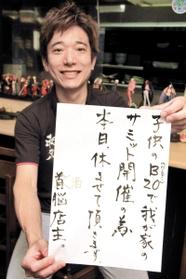 子供のB20で我が家の
サミット開催の為
本日休ませて頂きます。
首脳店主。